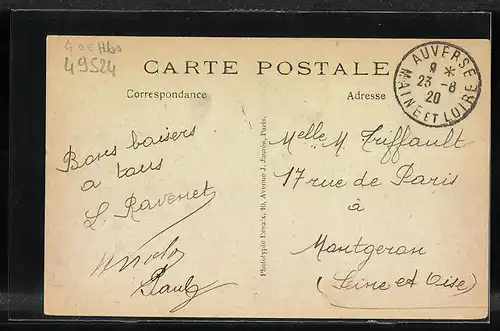 49524
CARTE POSTALE
Correspondance
Adresse
AUVERSE
23 - 8
20
MAINE ET LOIRE
Bons baisers
a tous
L. Ravenet
Paul
Phototypie Desaix, 10, Avenue J. Jaurès, Paris.
Melle M. Triffault
17 rue de Paris
à
Montgeron
(Seine et Oise)